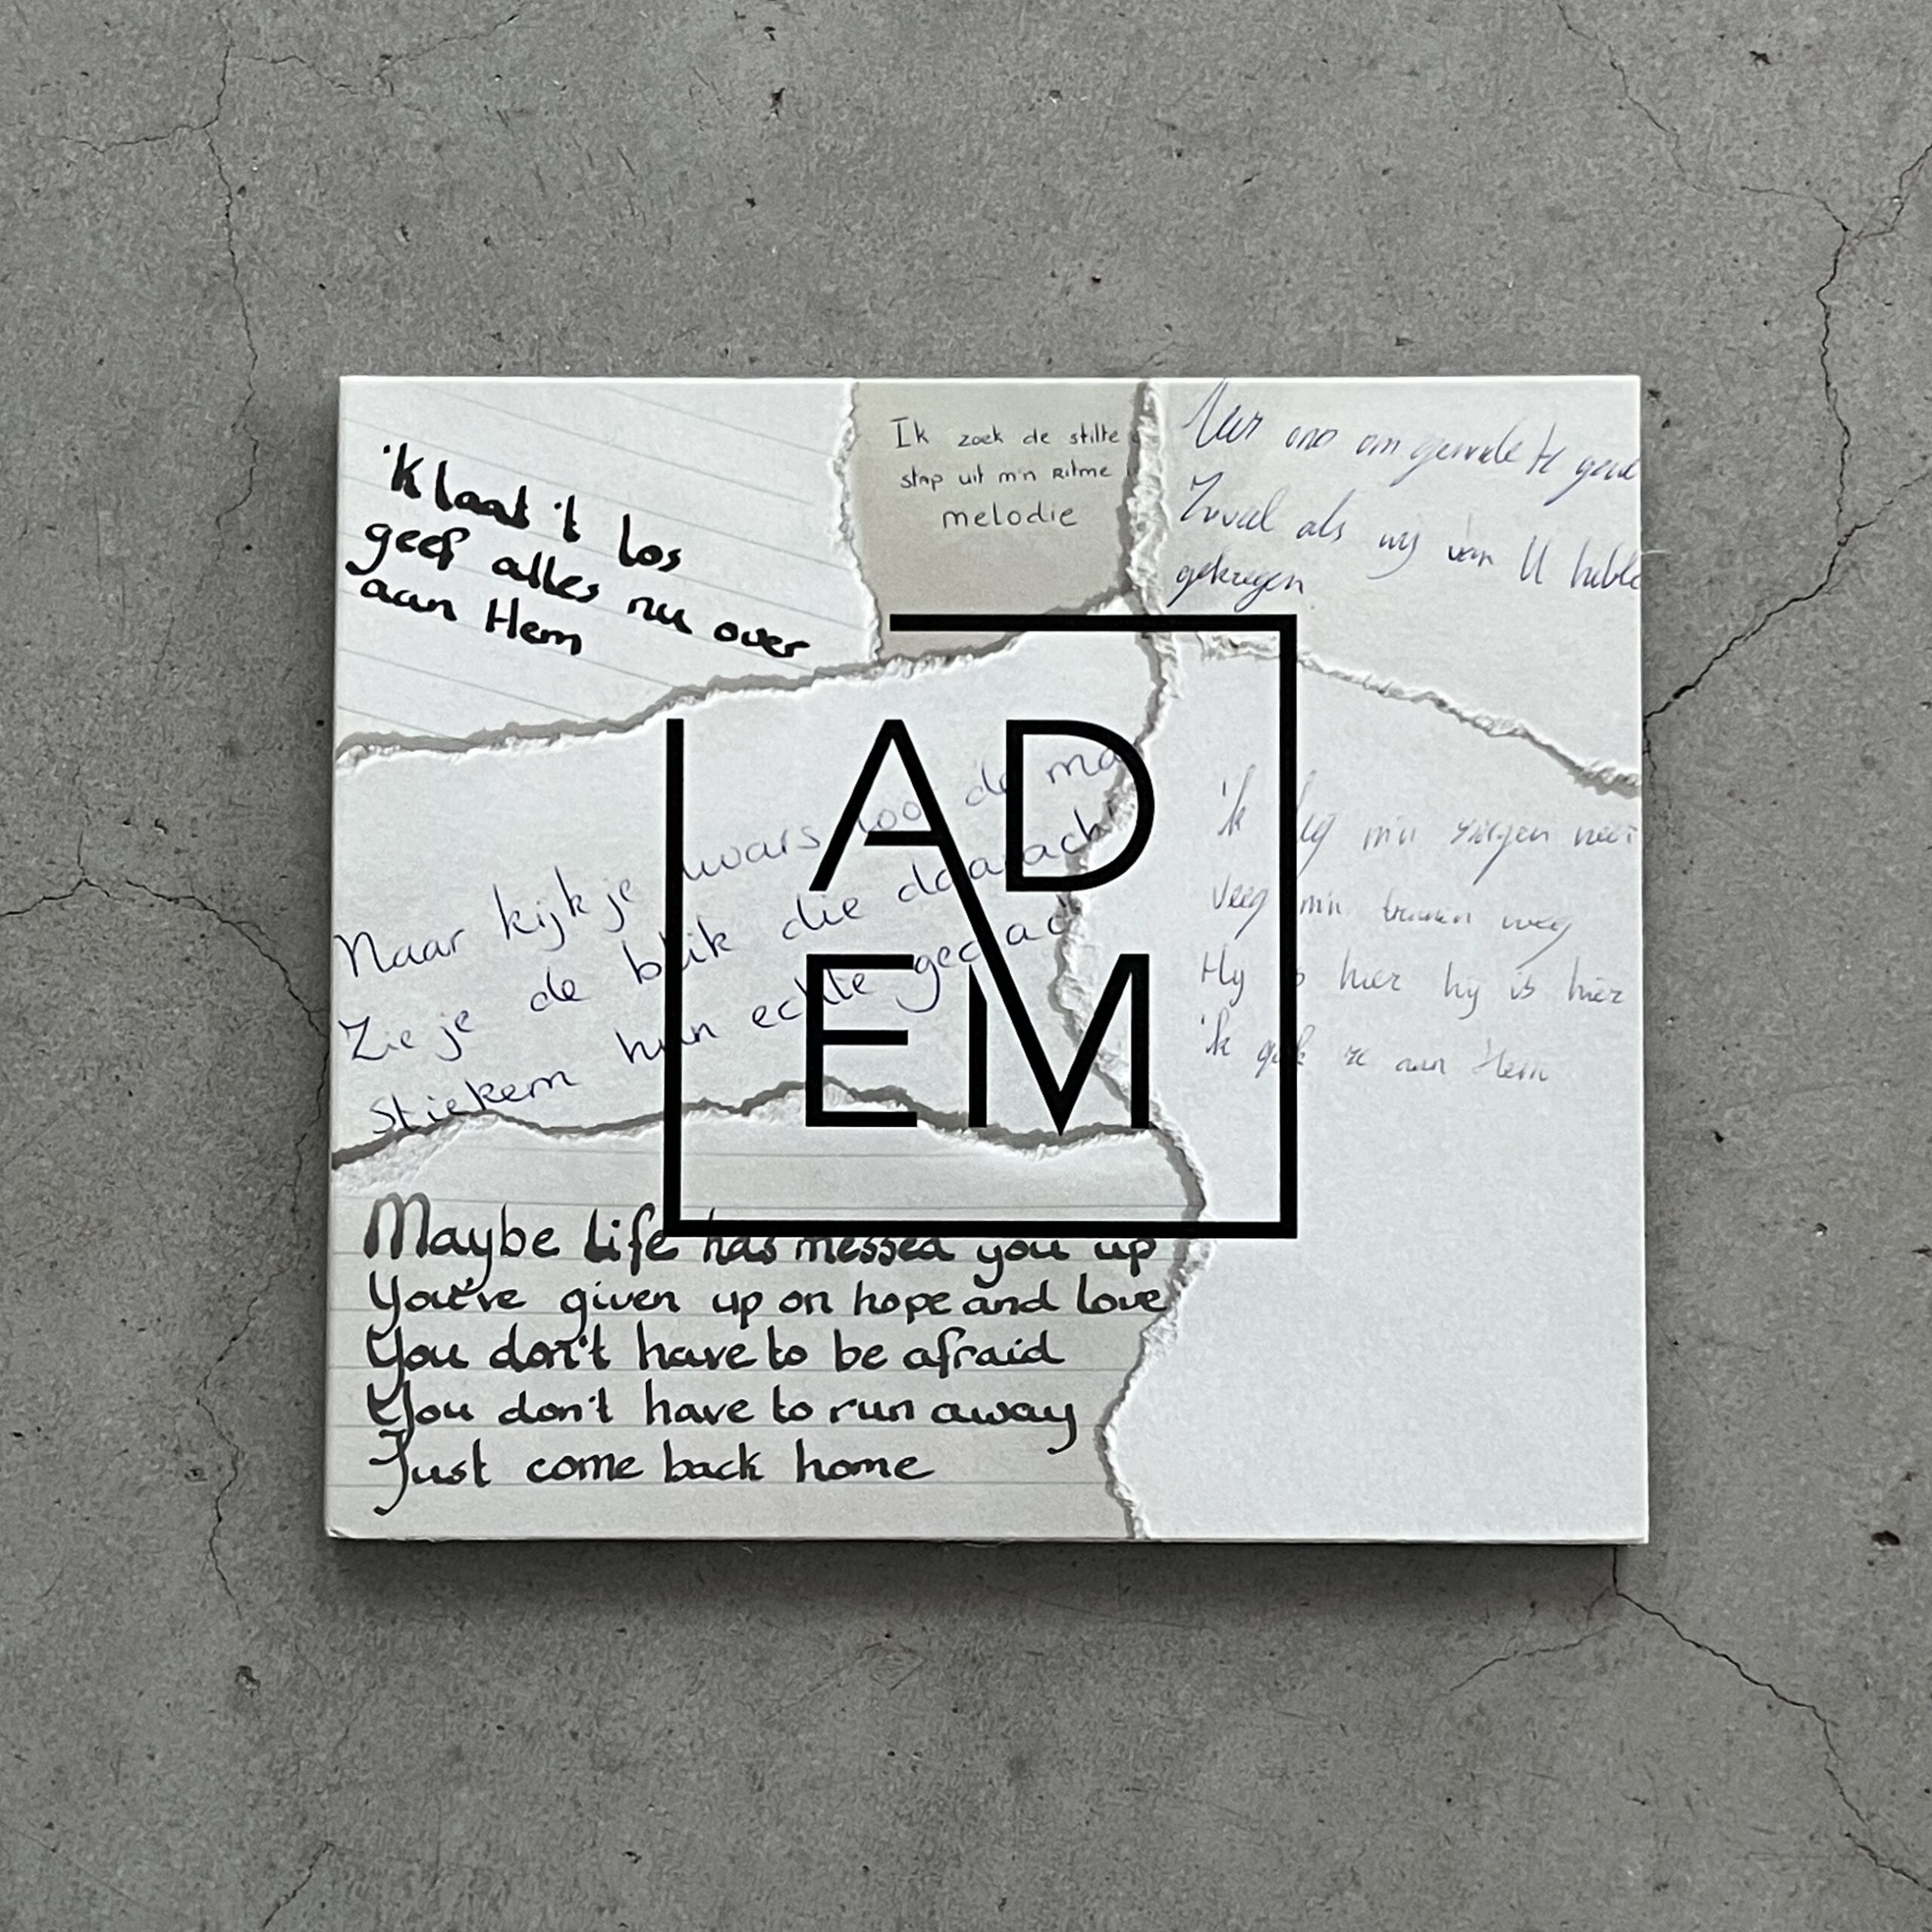 'K laat 't los
geef alles nu over
aan Hem
Ik zoek de stilte
stap uit m'n Ritme
melodie
Leer ons om genade te
Zoveel als wij van U
gekregen
AD
EM
Maar kijk je dwars door de
Zie je de blik die daarachter
Stiekem hun echte
'k leg m'n zorgen neer
veeg m'n tranen weg
Hij is hier hij is hier
'k geef ze aan Hem
Maybe Life has messed you up
You've given up on hope and love
You don't have to be afraid
You don't have to run away
Just come back home